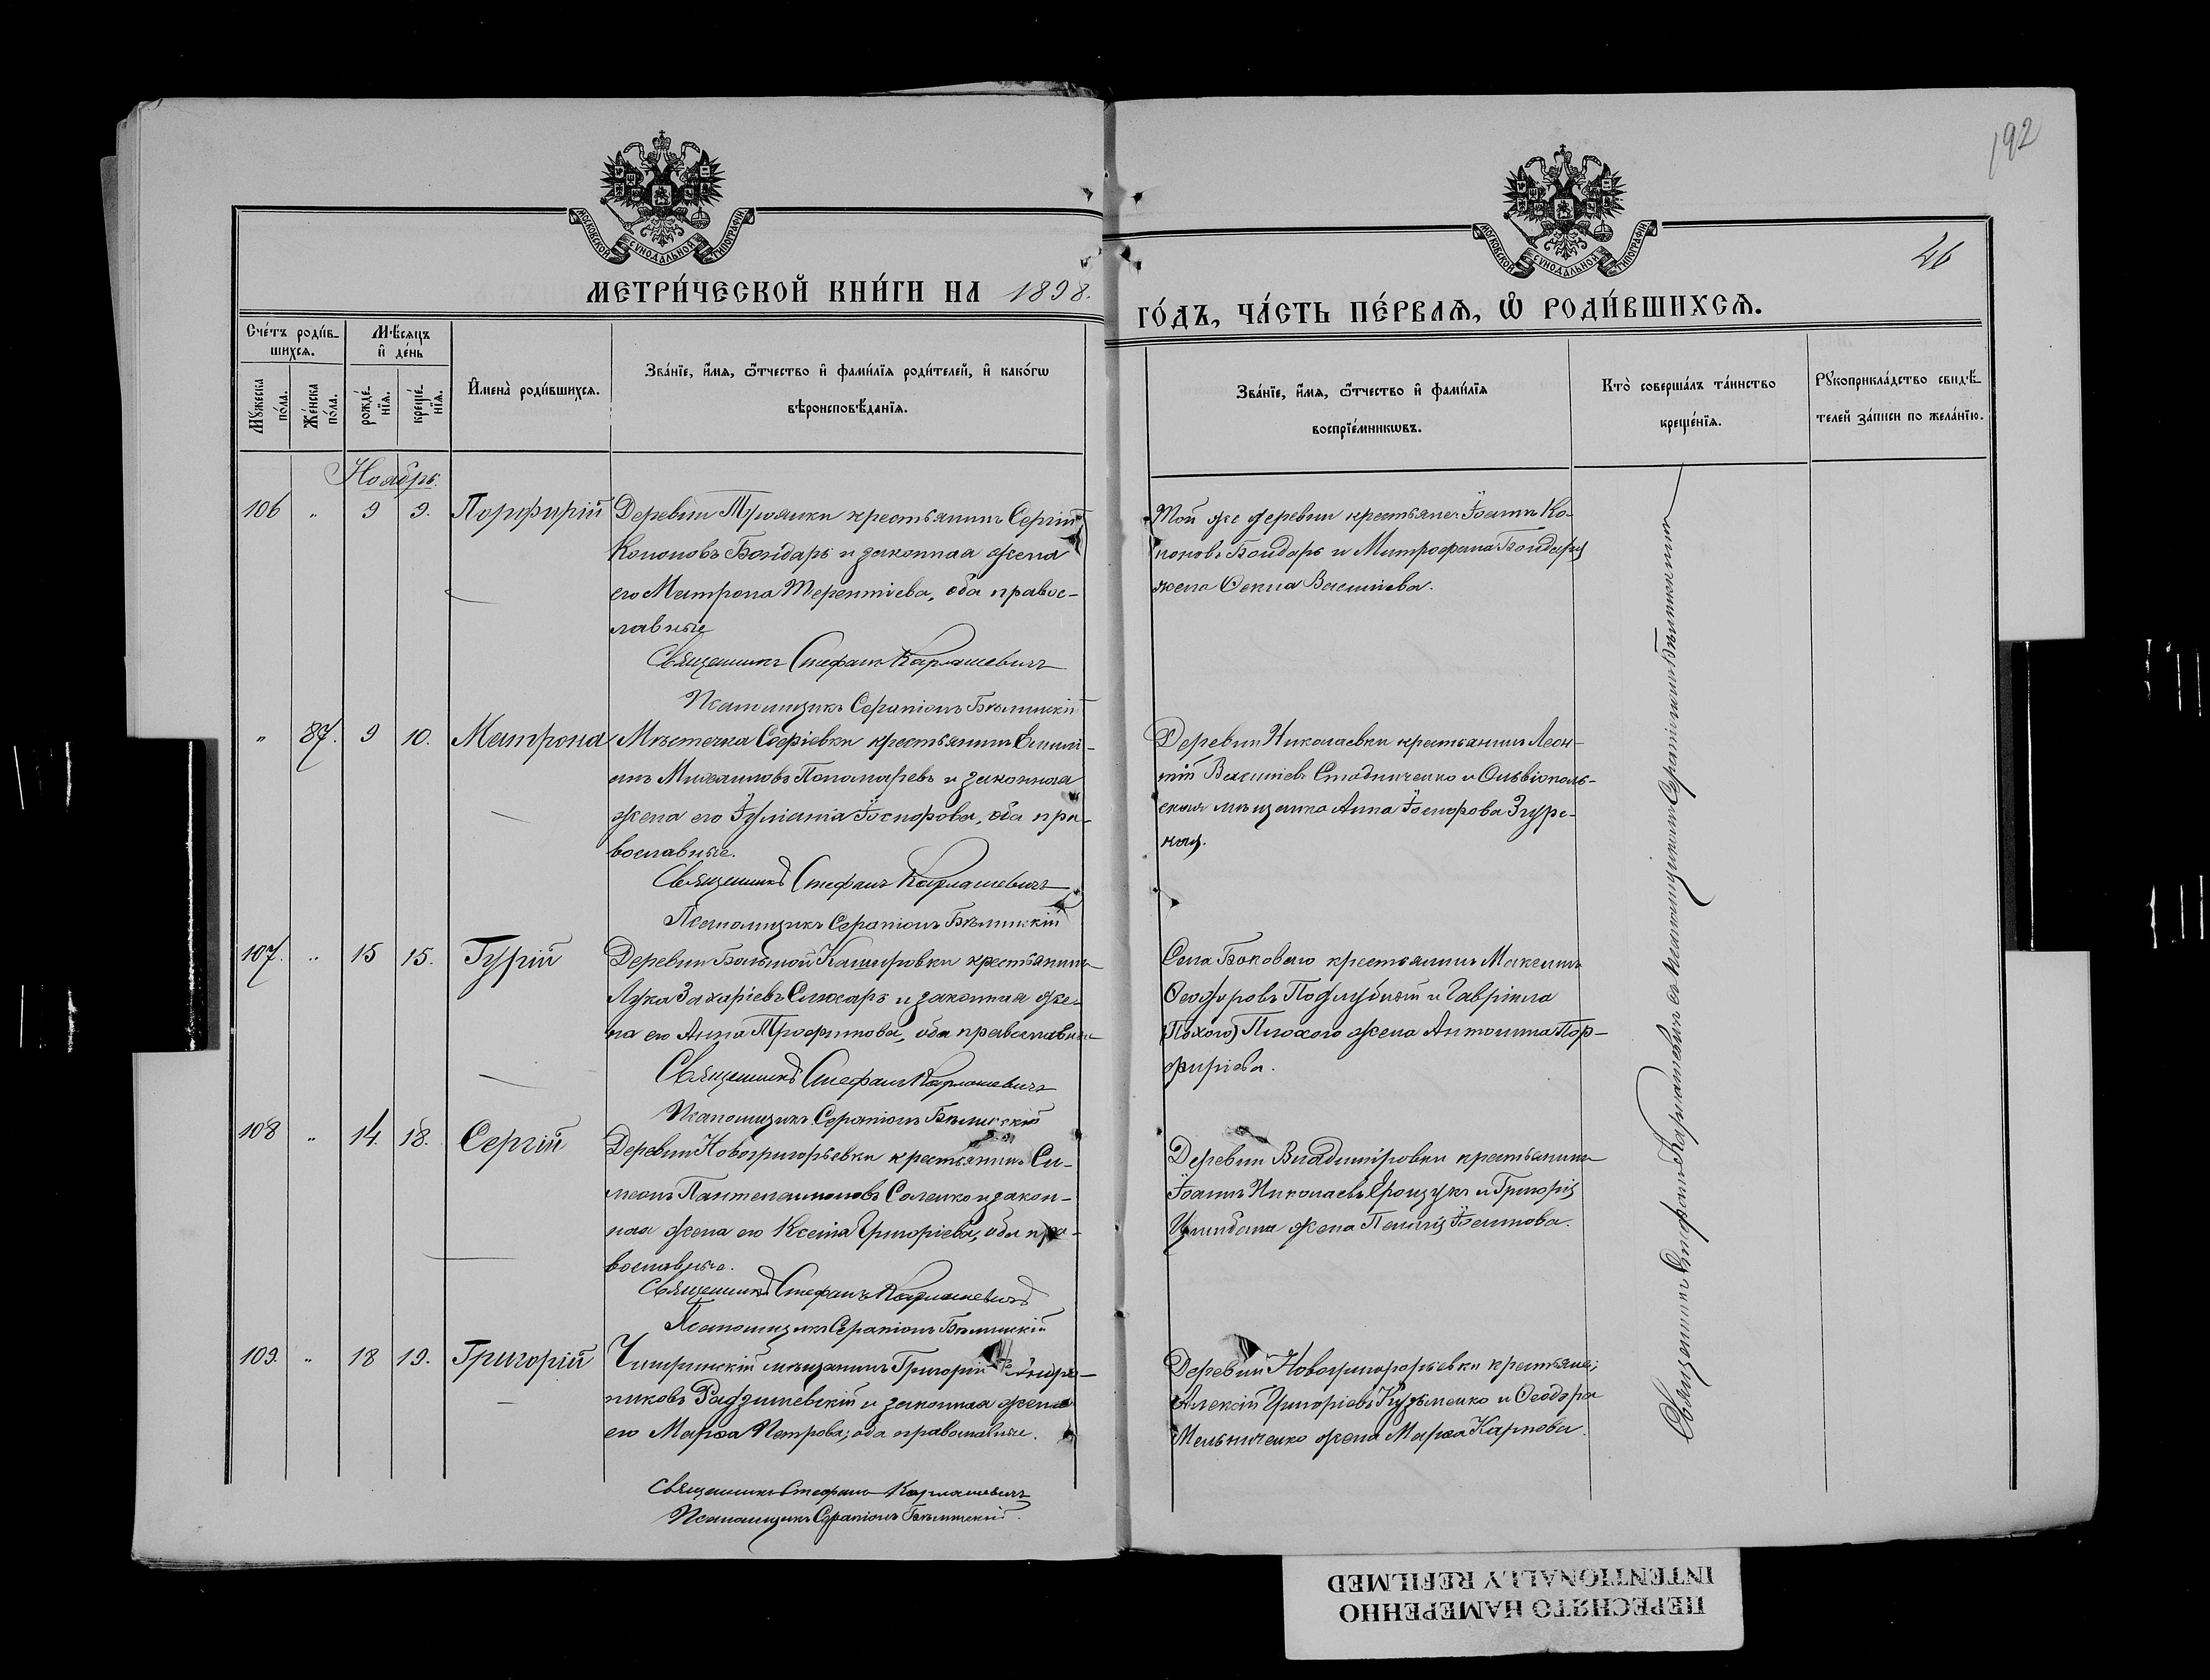 192
МОСКОВСКОЙ СѴНОДАЛЬНОЙ ТИПОГРАФІИ
МОСКОВСКОЙ СѴНОДАЛЬНОЙ ТИПОГРАФІИ
26
МЕТРИ́ЧЕСКОЙ КНИ́ГИ НА 1898.
ГО́ДЪ, ЧА́СТЬ ПЕ́РВАѦ, Ѽ РОДИ́ВШИХСѦ.
Сче́тъ роди́в-
шихсѧ.
Мꙋ́жеска
по́ла.
Же́нска
по́ла.
Мѣ́сѧцъ
и҆ де́нь
рожде́-
нїѧ.
креще́-
нїѧ.
И҆мена̀ роди́вшихсѧ.
Зва́нїе, и҆́мѧ, ѻ҆́тчество и҆ фами́лїѧ роди́телей, и҆ како́гѡ
вѣроисповѣ́данїѧ.
Зва́нїе, и҆́мѧ, ѻ҆́тчество и҆ фами́лїѧ
воспрїе́мникѡвъ.
Кто̀ соверша́лъ та́инство
креще́нїѧ.
Рꙋкоприкла́дство свидѣ́-
телей за́писи по жела́нїю.
Ноябрь.
106 " 9 9. Порфирій Деревни Тушянки крестьянинъ Сергій
Кононовъ Бондарь и законная жена
его Матрона Терентіева, оба правос-
лавные
Священникъ Стефанъ Карпашевичъ
Псаломщикъ Серапіонъ Бѣлинскій
Той же деревни крестьяне: Іоаннъ Ко-
ноновъ Бондарь и Митрофана Бондаря
жена Ѳекла Василіева.
" 87. 9 10. Матрона Мѣстечка Софіевки крестьянинъ
Михаиловъ Пономаревъ и законная
жена его Іуліанія Іосифова, оба пра-
вославные.
Священникъ Стефанъ Карпашевичъ
Псаломщикъ Серапіонъ Бѣлинскій
Деревни Николаевки крестьянинъ Леон-
тій Василіевъ Стадниченко и Ольвіополь-
ская мѣщанка Анна Іосифова Згурс-
кая.
107. " 15 15. Гурій Деревни Большой Кашировки крестьянинъ
Лука Захаріевъ Слюсарь и законная же-
на его Анна Трофимова, оба православные
Священникъ Стефанъ Карпашевичъ
Псаломщикъ Серапіонъ Бѣлинскій
Села Боковаго крестьянинъ Максимъ
Ѳеодоровъ Поддубный и Гавріила
(Плохого) Плохого жена Антонина Пор-
фиріева.
108 " 14. 18. Сергій Деревни Новогригорьевки крестьянинъ Си-
меонъ Пантелеимоновъ Саленко и закон-
ная жена его Ксенія Григоріева, оба пра-
вославные.
Священникъ Стефанъ Карпашевичъ
Псаломщикъ Серапіонъ Бѣлинскій
Деревни Владиміровки крестьянинъ
Іоаннъ Николаевъ и Григорія
Цимбала жена Пелагія
109. " 18 19. Григорій Чигиринскій мѣщанинъ Григорій
никовъ Радзишевскій и законная жена
его Марѳа Петрова; оба православные.
Священникъ Стефанъ Карпашевичъ
Псаломщикъ Серапіонъ Бѣлинскій.
Деревни Новогригорьевки крестьяне;
Алексій Григоріевъ Кузьменко и Ѳеодора
Мельниченко жена Марѳа Карпова.
Священникъ Стефанъ Карпашевичъ съ псаломщикомъ Серапіономъ Бѣлинскимъ
ПЕРЕСНЯТО НАМЕРЕННО
INTENTIONALLY REFILMED